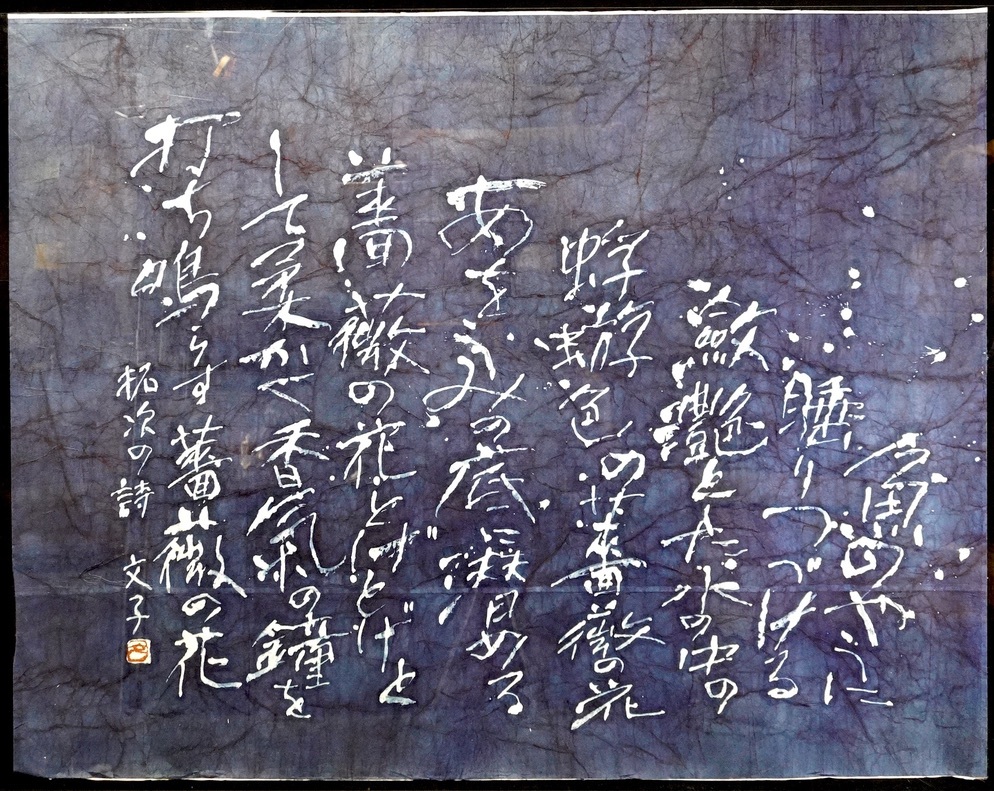 魚のやうに
睡りつづける
瀲灔とした水の中の
蜉蝣色の薔薇の花
あをうみの底に潜める
薔薇の花とげとげと
して柔かく香氣の鐘を
打ち鳴らす薔薇の花
拓次の詩 文子